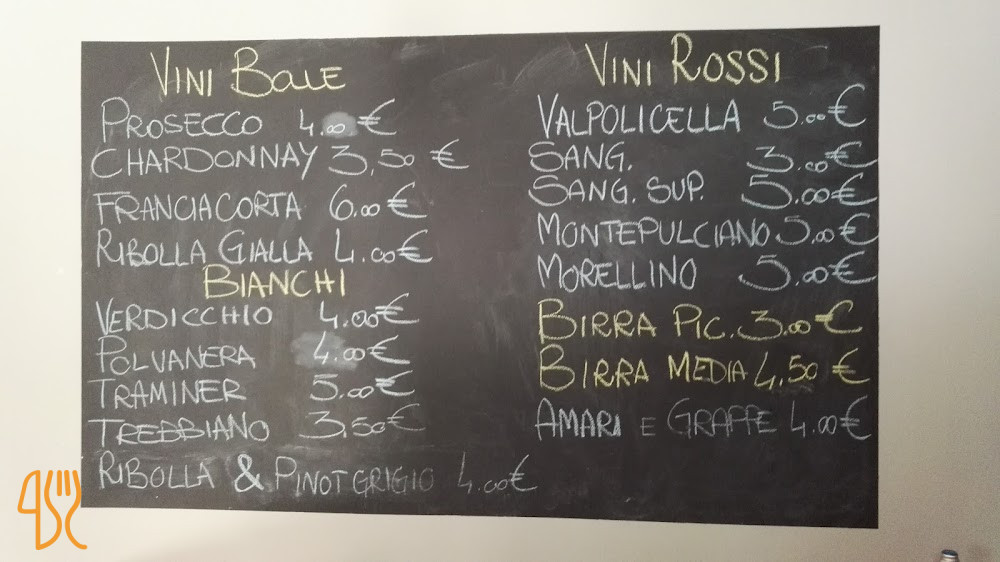 VINI BOLLE
PROSECCO 4.00 €
CHARDONNAY 3,50 €
FRANCIACORTA 6.00 €
RIBOLLA GIALLA 4.00 €
BIANCHI
VERDICCHIO 4.00 €
POLVANERA 4.00 €
TRAMINER 5.00 €
TREBBIANO 3,50 €
RIBOLLA & PINOT GRIGIO 4.00 €
VINI ROSSI
VALPOLICELLA 5.00 €
SANG. 3.00 €
SANG. SUP. 5.00 €
MONTEPULCIANO 5.00 €
MORELLINO 5.00 €
BIRRA PIC. 3.00 €
BIRRA MEDIA 4,50 €
AMARI E GRAPPE 4.00 €